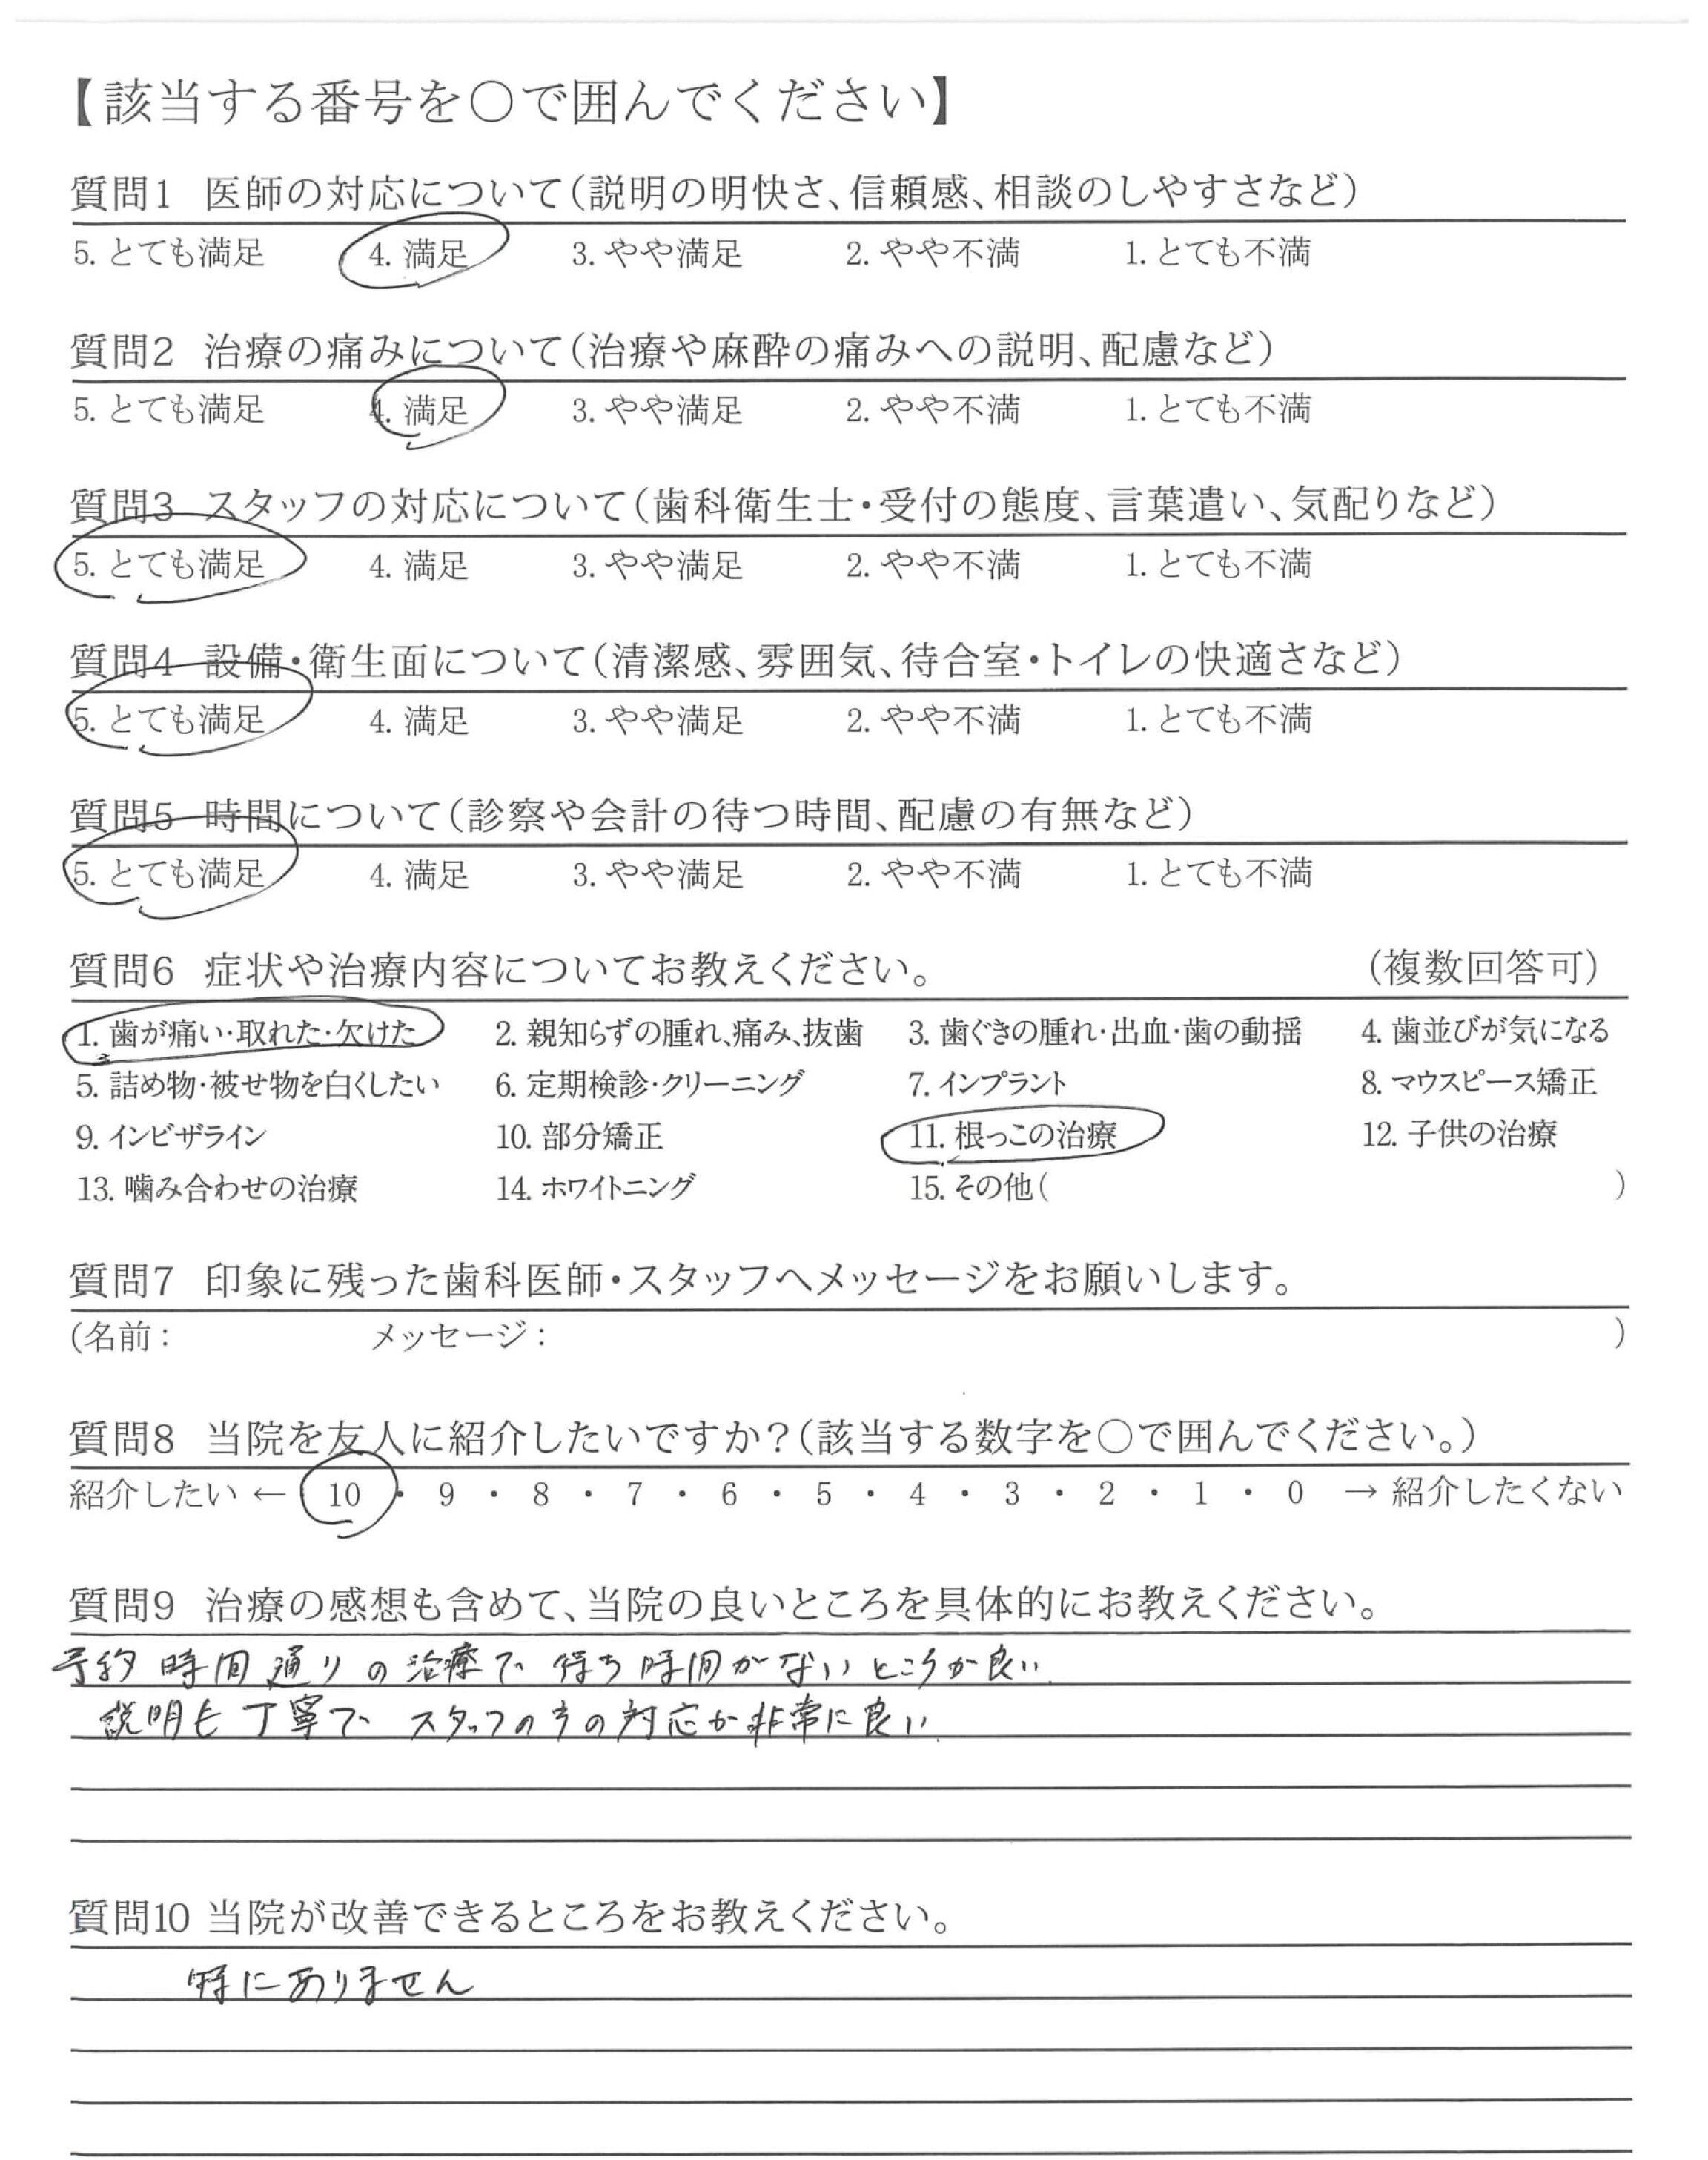 【該当する番号を○で囲んでください】
質問1 医師の対応について（説明の明快さ、信頼感、相談のしやすさなど）
5. とても満足 4. 満足 3. やや満足 2. やや不満 1. とても不満
質問2 治療の痛みについて（治療や麻酔の痛みへの説明、配慮など）
5. とても満足 4. 満足 3. やや満足 2. やや不満 1. とても不満
質問3 スタッフの対応について（歯科衛生士・受付の態度、言葉遣い、気配りなど）
5. とても満足 4. 満足 3. やや満足 2. やや不満 1. とても不満
質問4 設備・衛生面について（清潔感、雰囲気、待合室・トイレの快適さなど）
5. とても満足 4. 満足 3. やや満足 2. やや不満 1. とても不満
質問5 時間について（診察や会計の待つ時間、配慮の有無など）
5. とても満足 4. 満足 3. やや満足 2. やや不満 1. とても不満
質問6 症状や治療内容についてお教えください。 （複数回答可）
1. 歯が痛い・取れた・欠けた 2. 親知らずの腫れ、痛み、抜歯 3. 歯ぐきの腫れ・出血・歯の動揺 4. 歯並びが気になる
5. 詰め物・被せ物を白くしたい 6. 定期検診・クリーニング 7. インプラント 8. マウスピース矯正
9. インビザライン 10. 部分矯正 11. 根っこの治療 12. 子供の治療
13. 噛み合わせの治療 14. ホワイトニング 15. その他（ ）
質問7 印象に残った歯科医師・スタッフへメッセージをお願いします。
（名前： メッセージ： ）
質問8 当院を友人に紹介したいですか？（該当する数字を○で囲んでください。）
紹介したい ← 10 ・ 9 ・ 8 ・ 7 ・ 6 ・ 5 ・ 4 ・ 3 ・ 2 ・ 1 ・ 0 → 紹介したくない
質問9 治療の感想も含めて、当院の良いところを具体的にお教えください。
予約時間通りの治療で待ち時間がないところが良い
説明も丁寧で スタッフの方の対応が非常に良い
質問10 当院が改善できるところをお教えください。
特にありません